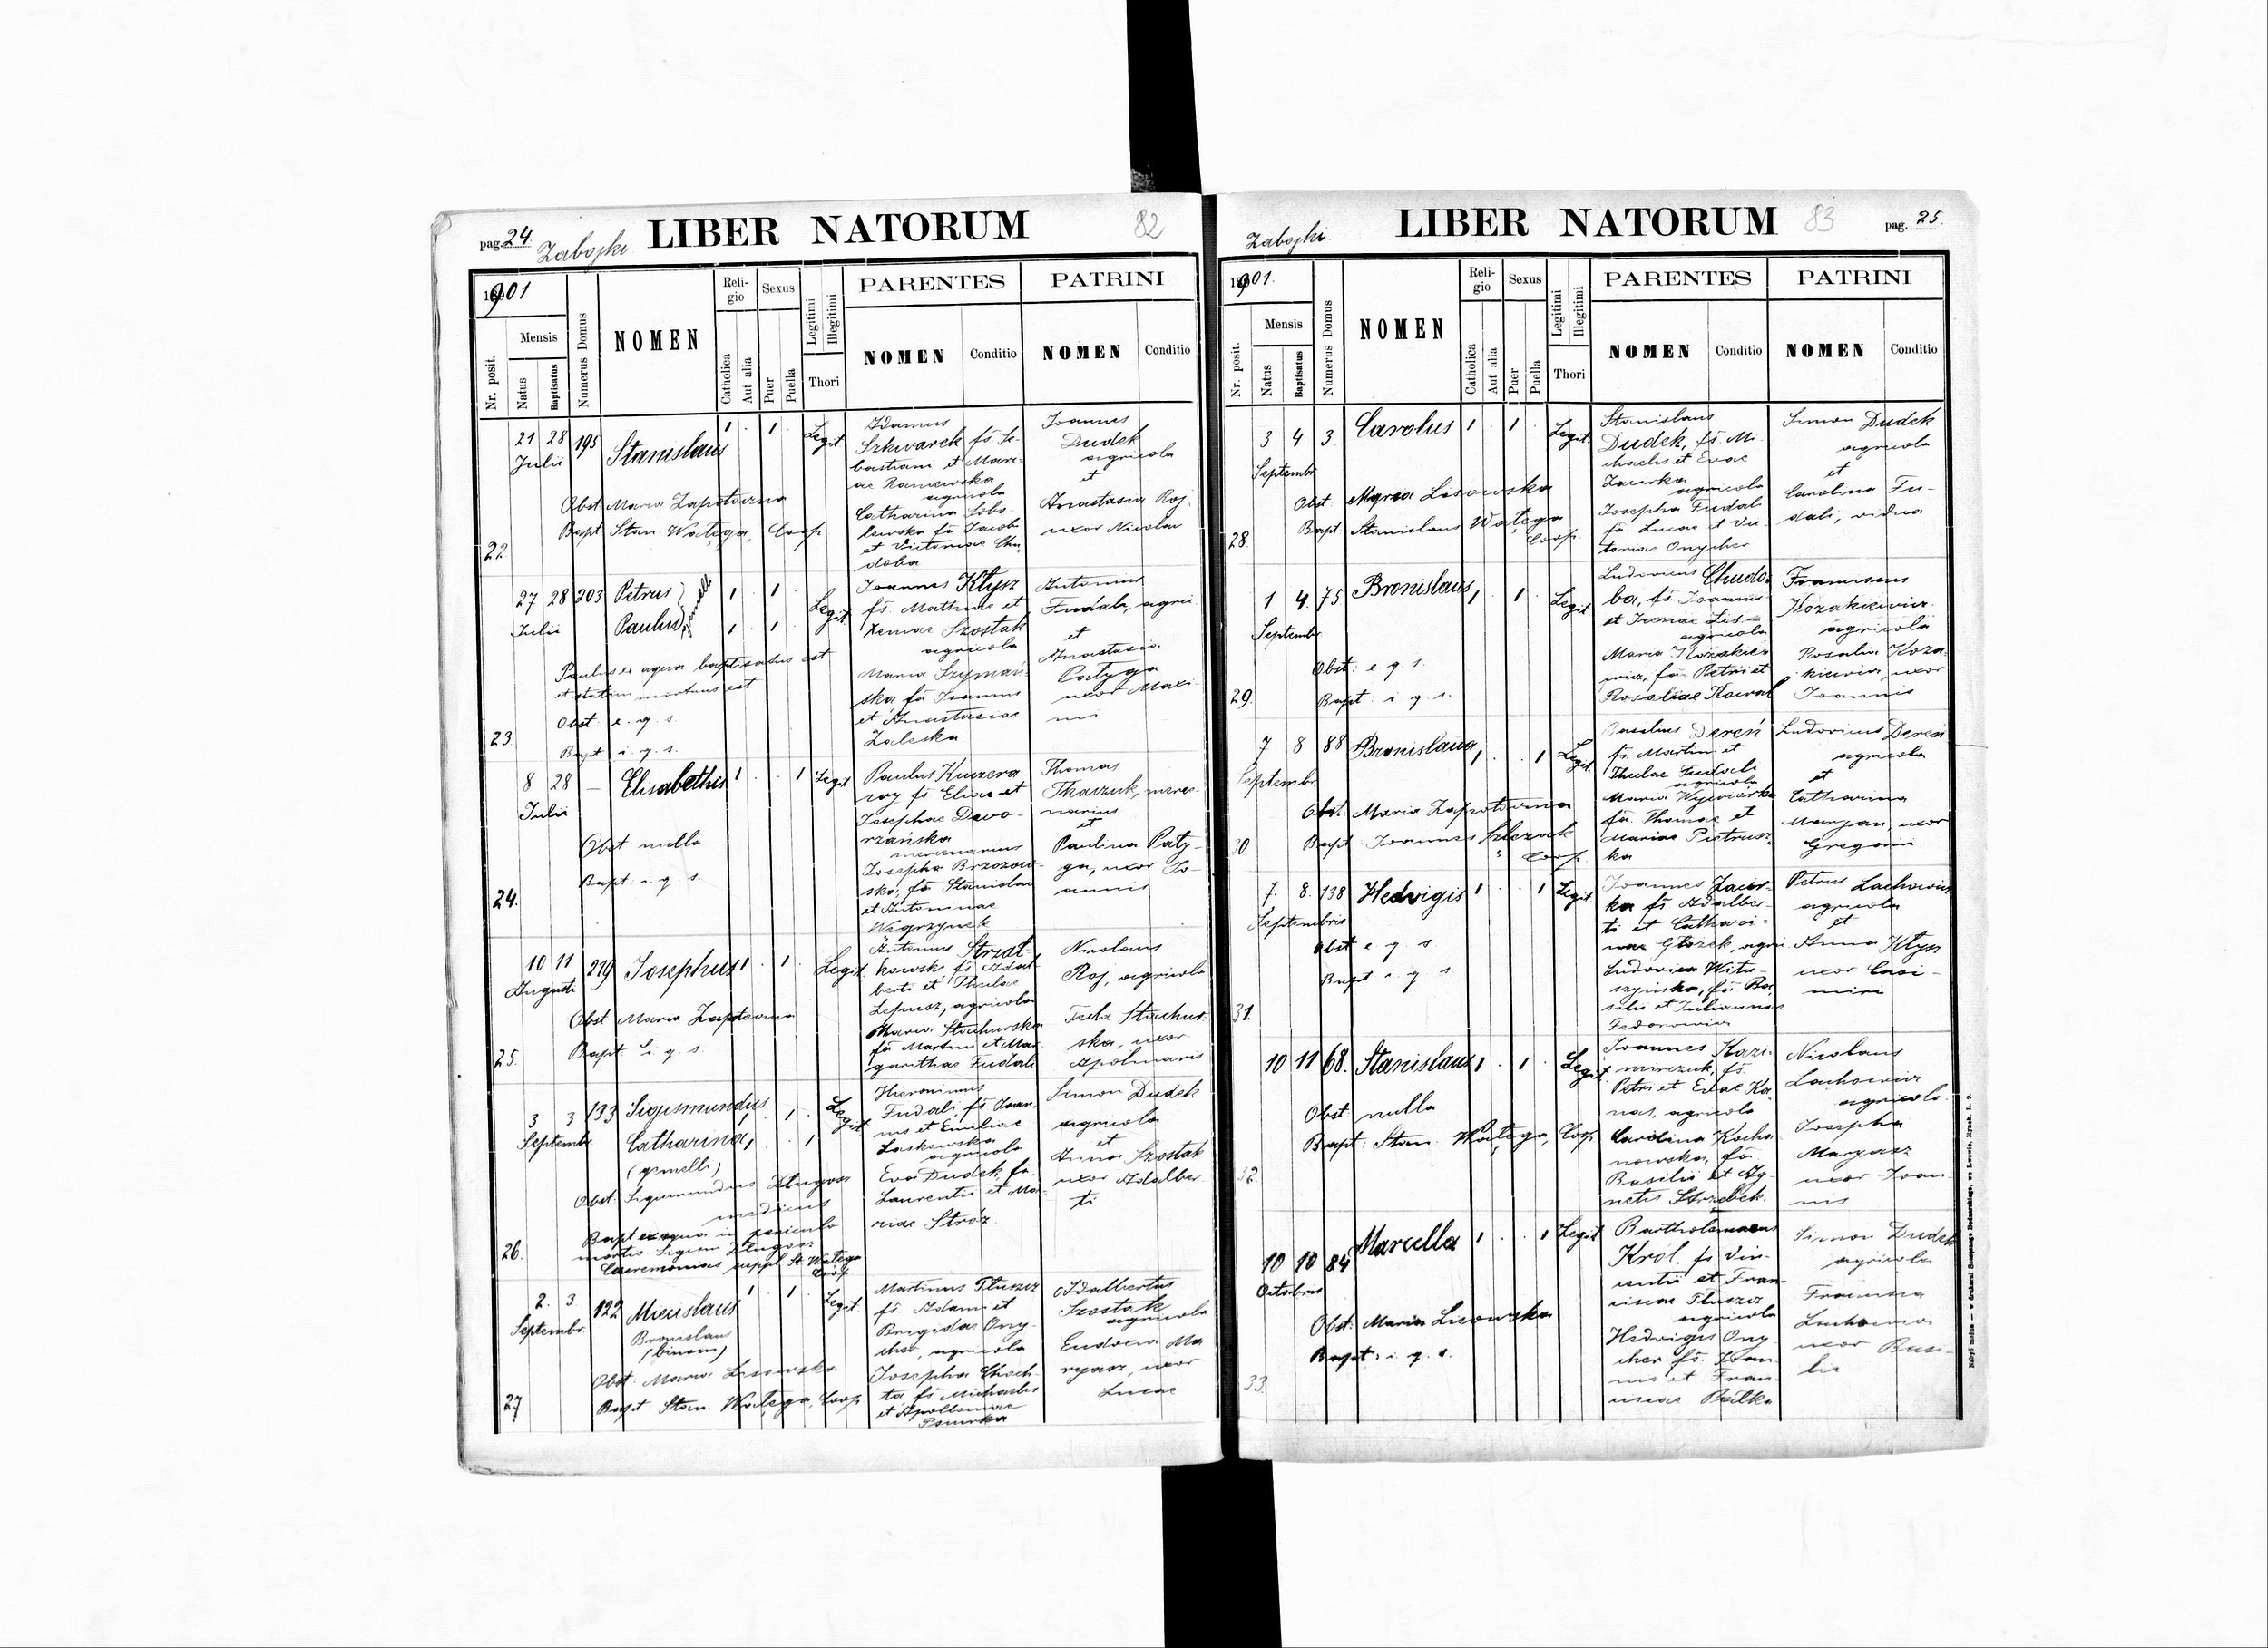 pag. 24.
Zabojki
LIBER NATORUM
82
1901.
Nr. posit.
Mensis
Natus
Baptisatus
Numerus Domus
NOMEN
Reli-
gio
Catholica
Aut alia
Sexus
Puer
Puella
Legitimi
Illegitimi
Thori
PARENTES
NOMEN
Conditio
PATRINI
NOMEN
Conditio
22.
21 28
Julii
195
Stanislaus
1 . 1 .
Legit
Obst Maria Zapotoczna
Bapt Stan. Watęga, Coop
Adamus
Szkwarek fs Se-
bastiani et Mari-
ae Raniewska
agricola
Catharina Sobo-
lewska fa Jacobi
et Victoriae Chu-
doba
Joannes
Dudek
agricola
et
Anastasia Roj
uxor Nicolai
23.
27 28 203
Julii
Petrus
Paulus
gemelli
1 . 1 .
1 . 1 .
Legit
Paulus ex aqua baptisatus est
et statim mortuus est
Obst: e. q. s.
Bapt: i. q. s.
Joannes Kłysz
fs. Mathiae et
Xeniae Szostak
agricola
Maria Szymań-
ska, fa Joannis
et Anastasiae
Zaleska
Antonius
Fudali, agri
et
Anastasia
Patyga
uxor Maxi-
mi
24.
8 28 —
Julii
Elisabethis
1 . . 1
Legit
Obst nulla
Bapt: i. q. s.
Paulus
fs Eliae et
Josephae Dwo-
rzańska
mercenarius
Josepha Brzozow-
ska, fa Stanislai
et Antoninae
Węgrzynek
Thomas
Tkaczuk, merce-
narius
et
Paulina Paty-
ga, uxor Jo-
annis
25.
10 11 219
Augusti
Josephus
1 . 1 .
Legit
Obst Maria Zapotoczna
Bapt i. q. s.
Antonius Strzał-
kowski, fs Adal-
berti et Theclae
Lepusz, agricola
Maria Stachurska
fa Martini et Mar-
garithae Fudali
Nicolaus
Roj, agricola
Tecla Stachur-
ska, uxor
Apolinaris
26.
3 3 133
Septembr
Sigismundus
Catharina
(gemelli)
1 . 1 .
1 . . 1
Legit
Obst: Sigismundus Długosz
medicus
Bapt ex aqua in periculo
mortis Sigism Długosz
Caeremonias suppl St. Watęga
Coop.
Hieronimus
Fudali, fs Joan-
nis et Emiliae
Laskowska
agricola
Eva Dudek, fa
Laurentii et Ma-
riae Stróż
Simon Dudek
agricola
et
Anna Szostak
uxor Adalber-
ti
27
2. 3 122
Septembr.
Miecislaus
Bronislaus
(binom)
1 . 1 .
Legit.
Obst: Maria Lisowska
Bapt Stan. Watęga, Coop
Martinus Tłuszcz
fs Adami et
Brigidae Ony-
cher, agricola
Josepha Choch-
ta, fa Michaelis
et Apolloniae
Adalbertus
Szostak
agricola
Eudocia Ma-
ryasz, uxor
Lucae
Zabojki
LIBER NATORUM
83
pag. 25.
1901.
Nr. posit.
Mensis
Natus
Baptisatus
Numerus Domus
NOMEN
Reli-
gio
Catholica
Aut alia
Sexus
Puer
Puella
Legitimi
Illegitimi
Thori
PARENTES
NOMEN
Conditio
PATRINI
NOMEN
Conditio
28.
3 4 3.
Septembr
Carolus
1 . 1 .
Legit
Obst: Maria Lisowska
Bapt: Stanislaus Watęga
Coop.
Stanislaus
Dudek, fs. Mi-
chaelis et Evae
Zacirka
agricola
Josepha Fudali
fa Lucae et Vic-
toriae Onycher
Simon Dudek
agricola
et
Carolina Fu-
dali, vidua
29.
1 4. 75.
Septembr
Bronislaus
1 . 1 .
Legit
Obst: e. q. s.
Bapt: i. q. s.
Ludovicus Chudo-
ba, fs. Joannis
et Irenae Lis-
agricola
Maria Kozakie-
wicz, fa Petri et
Rosaliae Kowal
Franciscus
Kozakiewicz
agricola
Rosalia Koza-
kiewicz, uxor
Joannis
30.
7 8 88
Septembr
Bronislava
1 . . 1
Legit
Obst: Maria Zapotoczna
Bapt: Joannes Szlęzak
Coop.
Basilius Dereń
fs. Martini et
Theclae Fudali
agricola
Maria Wywiórka
fa. Thomae et
Mariae Pietrusz-
ka
Ludovicus Dereń
agricola
et
Catharina
Marjan, uxor
Gregorii
31.
7. 8. 138
Septembris
Hedvigis
1 . . 1
Legit
Obst e. q. s
Bapt: i. q. s.
Joannes Zacir-
ka fs Adalber-
ti et Cathari-
nae Głozek, agri
Ludovica Witu-
szyńska, fa Ba-
silii et Julianae
Fedorowicz
Petrus Lachowicz
agricola
et
Anna Kłysz
uxor Casi-
miri
32.
10 11 68.
Stanislaus
1 . 1 .
Legit
Obst: nulla
Bapt: Stan. Watęga, Coop
Joannes Kazi-
mirczuk, fs.
Petri et Evae Ka-
nas, agricola
Carolina Kocha-
nowska, fa
Basilii et Ag-
netis Strzebek
Nicolaus
Lachowicz
agricola
Josepha
Maryasz
uxor Joan-
nis
33.
10 10 84
Octobris
Marcella
1 . . 1
Legit
Obst: Maria Lisowska
Bapt: i. q. s.
Bartholomaeus
Król, fs Vin-
centii et Fran-
ciscae Tłuszcz
agricola
Hedvigis Ony-
cher fa. Joan-
nis et Fran-
ciscae Białka
Simon Dudek
agricola
Francisca
Lachowicz
uxor Basi-
lii